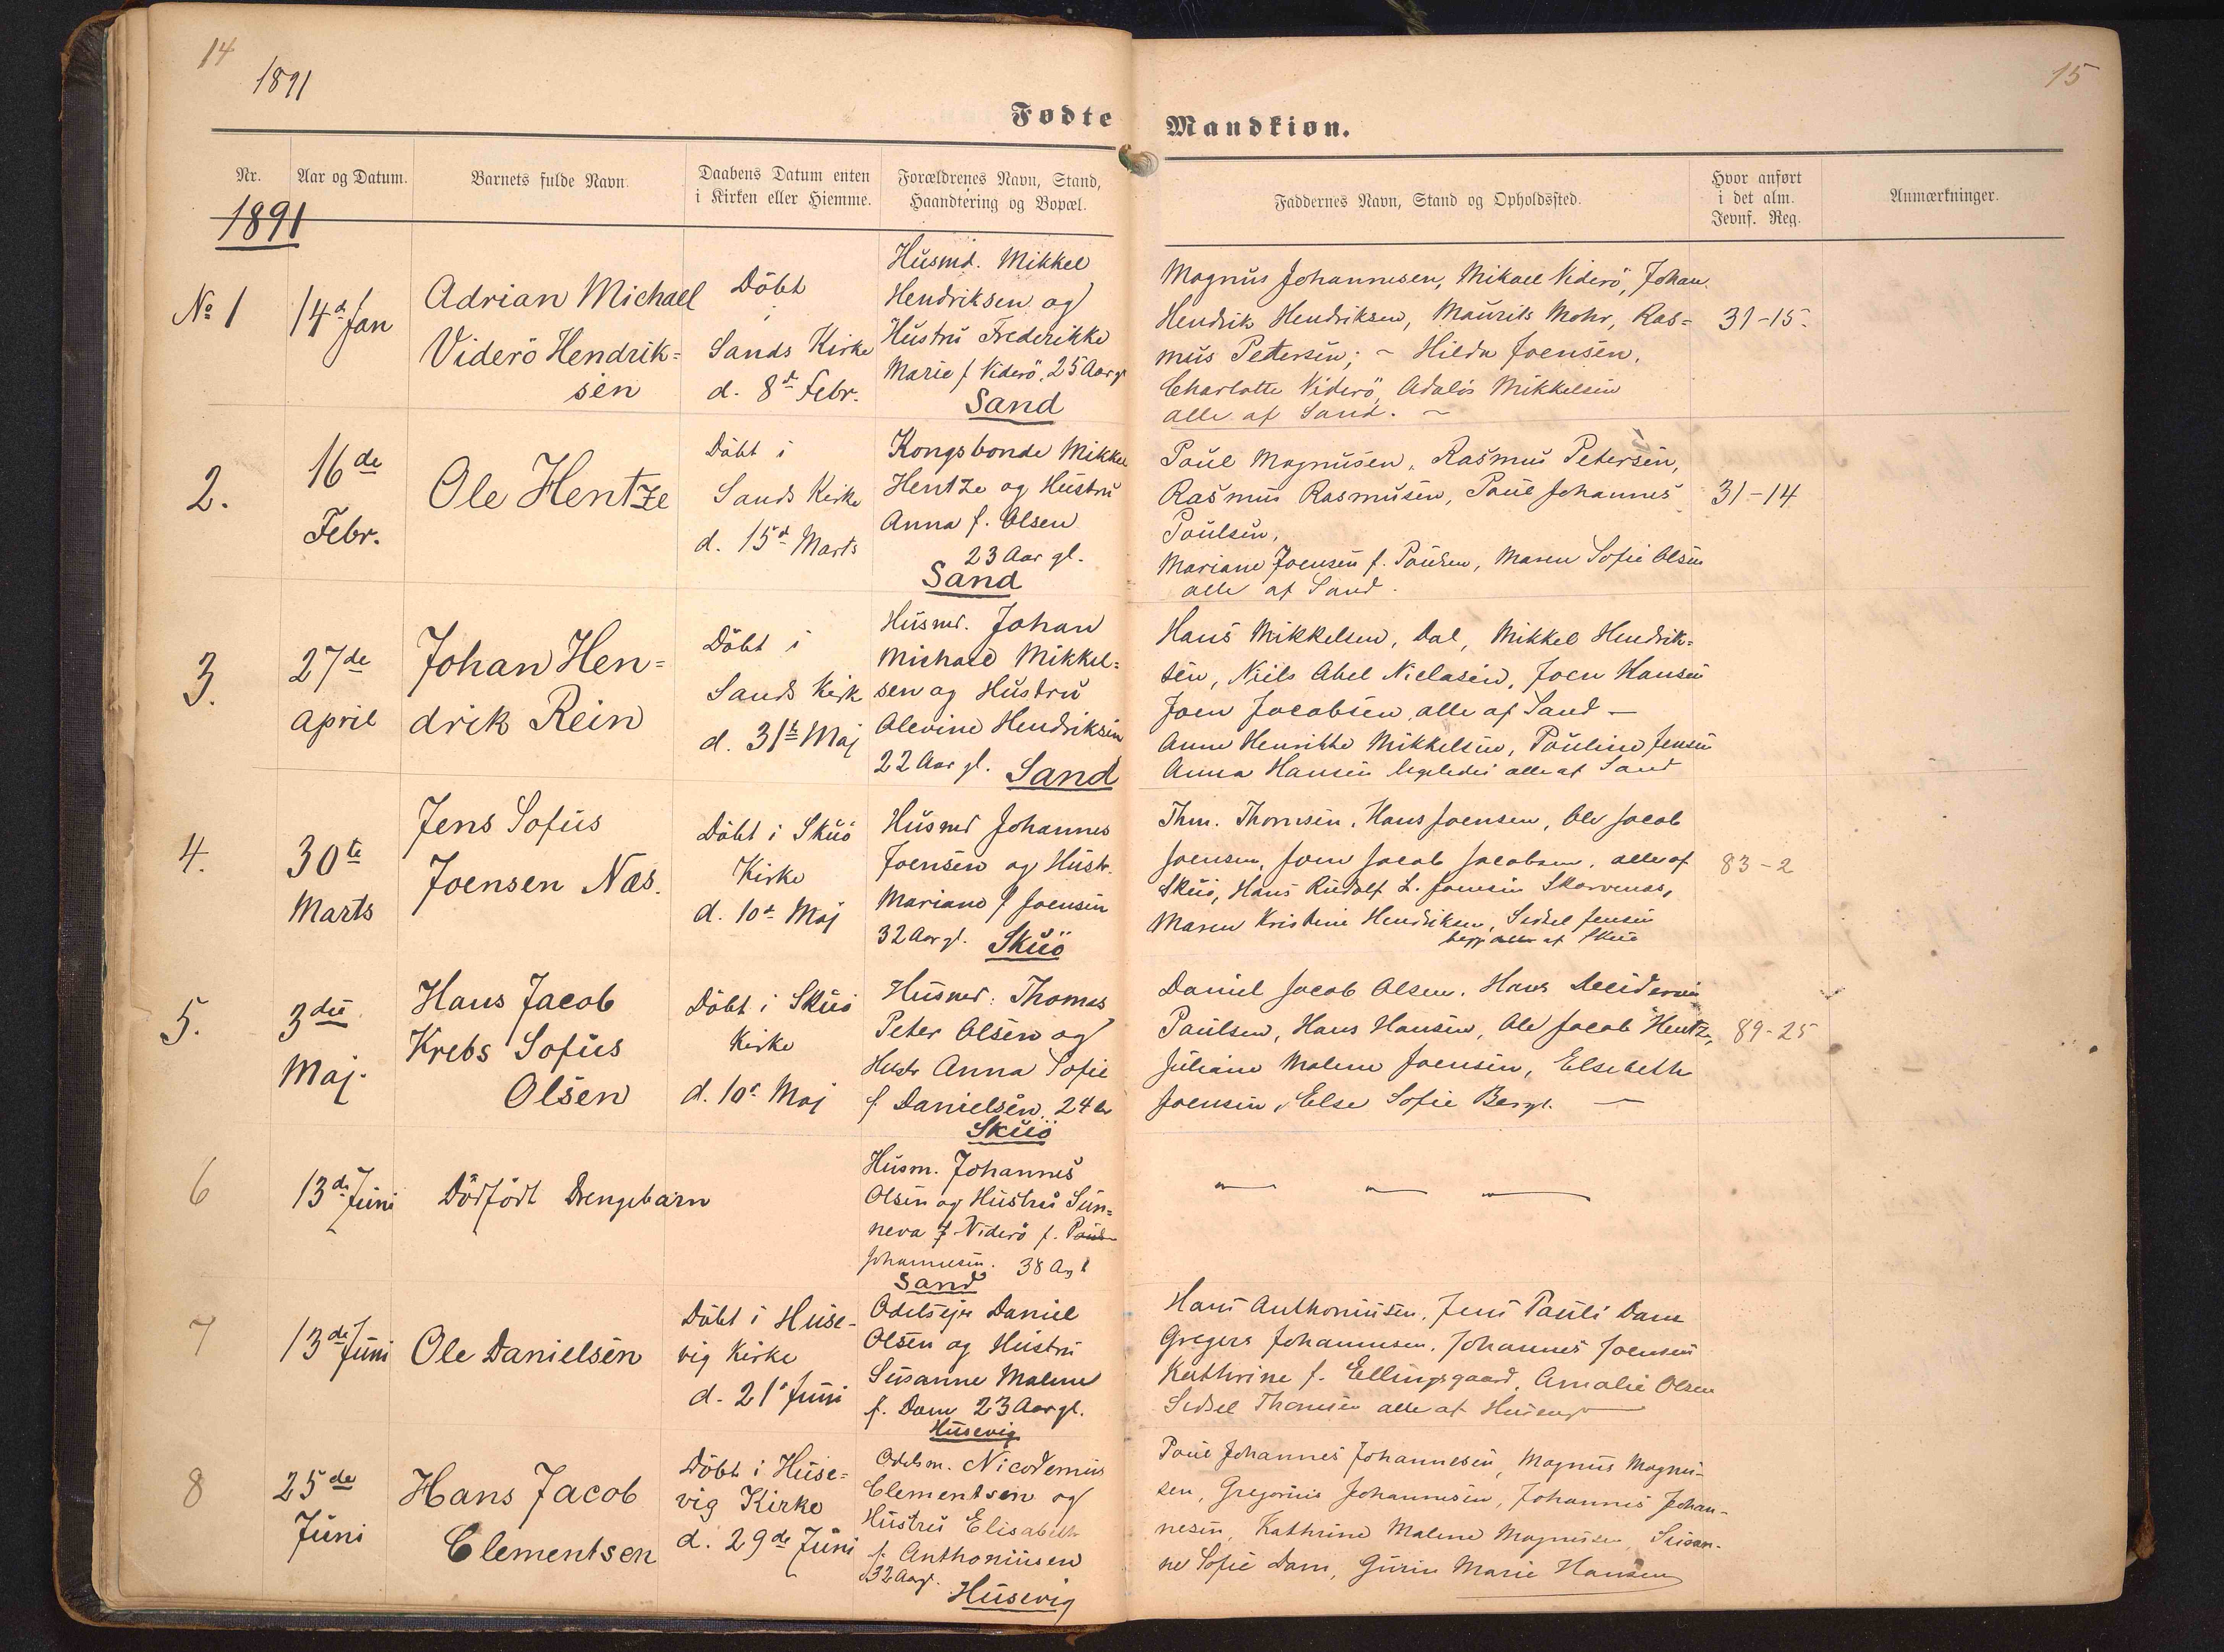 14
1891
15
Fødte
Mandkiøn.
Nr.
Aar og Datum.
Barnets fulde Navn.
Daabens Datum enten
i Kirken eller Hiemme.
Forældrenes Navn, Stand,
Haandtering og Bopæl.
Faddernes Navn, Stand og Opholdssted.
Hvor anført
i det alm.
Jevnf. Reg.
Anmærkninger.
1891
№ 1
14d Jan
Adrian Michael
Viderö Hendrik=
sen
Döbt
i
Sands Kirke
d. 8d Febr.
Husmd. Mikkel
Hendriksen og
Hustru Frederikke
Marie f. Viderö, 25 Aar gl
Sand
Magnus Johannesen, Mikael Viderö, Johan
Hendrik Hendriksen, Maurits Mohr, Ras=
mus Petersen; - Hilda Joensen,
Charlotte Viderö, Adalös Mikkelsen
alle af Sand. -
31-15.
2.
16de
Febr.
Ole Hentze
Döbt i
Sands Kirke
d. 15d Marts
Kongsbonde Mikkel
Hentze og Hustru
Anna f. Olsen
23 Aar gl.
Sand
Poul Magnusen, Rasmus Petersen,
Rasmus Rasmusen, Poul Johannes
Poulsen,
Mariane Joensen f. Poulsen, Maren Sofie Olsen
alle af Sand.
31-14
3.
27de
April
Johan Hen=
drik Rein
Döbt i
Sands Kirk
d. 31te Maj
Husmd. Johan
Michael Mikkel=
sen og Hustru
Olevine Hendriksen
22 Aar gl. Sand
Hans Mikkelsen, Dal, Mikkel Hendrik=
sen, Niels Abel Nielasen, Joen Hansen
Joen Jacobsen, alle af Sand -
Anne Henrikke Mikkelsen, Pouline Jensen
Anna Hansen ligeledes alle af Sand
4.
30te
Marts
Jens Sofus
Joensen Næs.
Döbt i Skuö
Kirke
d. 10d Maj
Husmd Johannes
Joensen og Hustr.
Mariane f Joensen
32 Aar gl. Skuö
Thm. Thomsen, Hans Joensen, Ole Jacob
Joensen, Joen Jacob Jacobsen, alle af
Skuö, Hans Rudolf L. Joensen Skarvenes,
Maren Kristine Hendriksen, Sidsel Jensen
alle af Skuö
83-2
5.
3die
Maj.
Hans Jacob
Krebs Sofus
Olsen
Döbt i Skuö
Kirke
d. 10d Maj
Husmd. Thomas
Peter Olsen og
Hustr Anna Sofie
f. Danielsen, 24 Aar
Skuö
Daniel Jacob Olsen, Hans
Poulsen, Hans Hansen, Ole Jacob Hentze,
Juliane Malene Joensen, Elsebeth
Joensen, Else Sofie Berg. -
89-25
6
13de Juni
Dödfödt Drengebarn
Husm. Johannes
Olsen og Hustru Sun=
neva f. Viderö f.
Johannesen. 38 A gl
Sand
7
13de Juni
Ole Danielsen
Döbt i Huse-
vig Kirke
d. 21d Juni
Odelsejer Daniel
Olsen og Hustru
Susanne Malene
f. Dam 23 Aar gl.
Husevig
Hans Anthoniusen, Jens Pauli Dam
Gregers Johannesen, Johannes Joensen
Kathrine f. Ellingsgaard, Amalie Olsen
Sidsel Thomsen alle af Husevig
8
25de
Juni
Hans Jacob
Clementsen
Döbt i Huse=
vig Kirke
d. 29de Juni
Odelsm. Nicodemus
Clementsen og
Hustru Elisabeth
f. Anthoniusen
32 Aar gl.
Husevig
Poul Johannes Johannesen, Magnus Magnu-
sen, Gregorius Johannesen, Johannes Johan-
nesen, Kathrine Malene Magnusen, Susan-
ne Sofie Dam, Gurin Marie Hansen